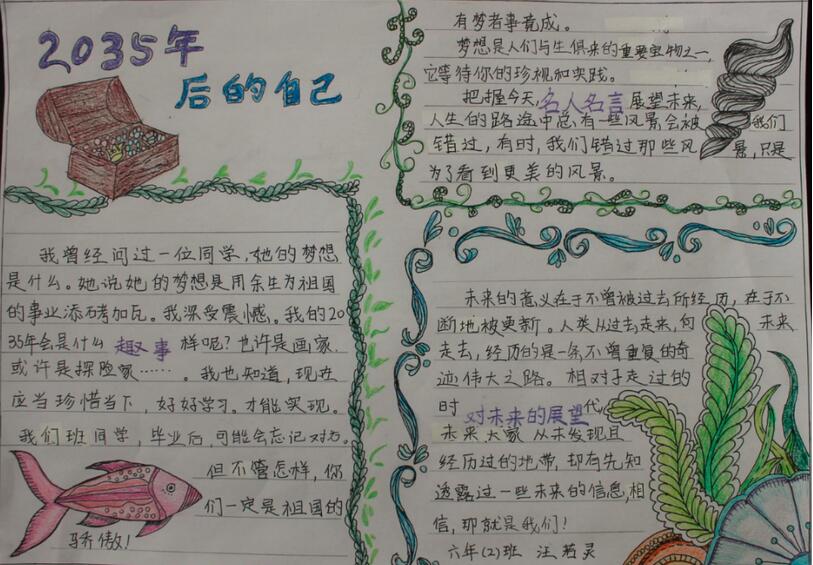 2035年
后的自己
我曾经问过一位同学,她的梦想
是什么。她说她的梦想是用余生为祖国
的事业添砖加瓦。我深受震憾。我的20
35年会是什么 趣事 样呢?也许是画家,
或许是探险家……。我也知道,现在
应当珍惜当下,好好学习。才能实现。
我们班同学,毕业后,可能会忘记对方。
但不管怎样,你
们一定是祖国的
骄傲!
有梦者事竟成。
梦想是人们与生俱来的重要宝物之一,
它等待你的珍视和实践。
把握今天,名人名言 展望未来,
人生的路途中总有一些风景会被 我们
错过,有时,我们错过那些风 景,只是
为了看到更美的风景。
未来的意义在于不曾被过去所经历,在于不
断地被更新。人类从过去走来,向 未来
走去,经历的是一条不曾重复的奇
迹伟大之路。相对于走过的
时 对未来的展望 代,
未来大家从未发现且
经历过的地带,却有先知
透露过一些未来的信息,相
信,那就是我们!
六年(2)班 汪若灵